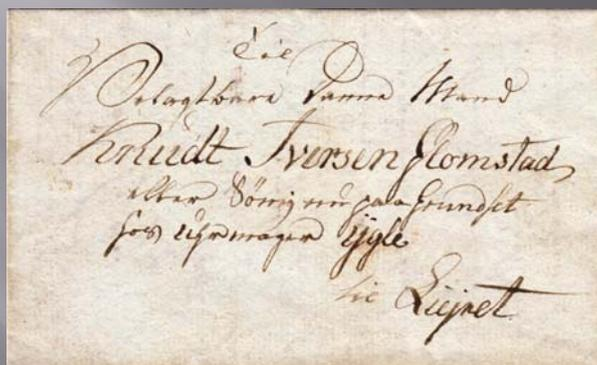 Til
Velagtbare Danne Mand
Knudt Iversen Glomstad
eller Sönig nu paa Grundset
hos Uhrmager Ygle
til Leiret